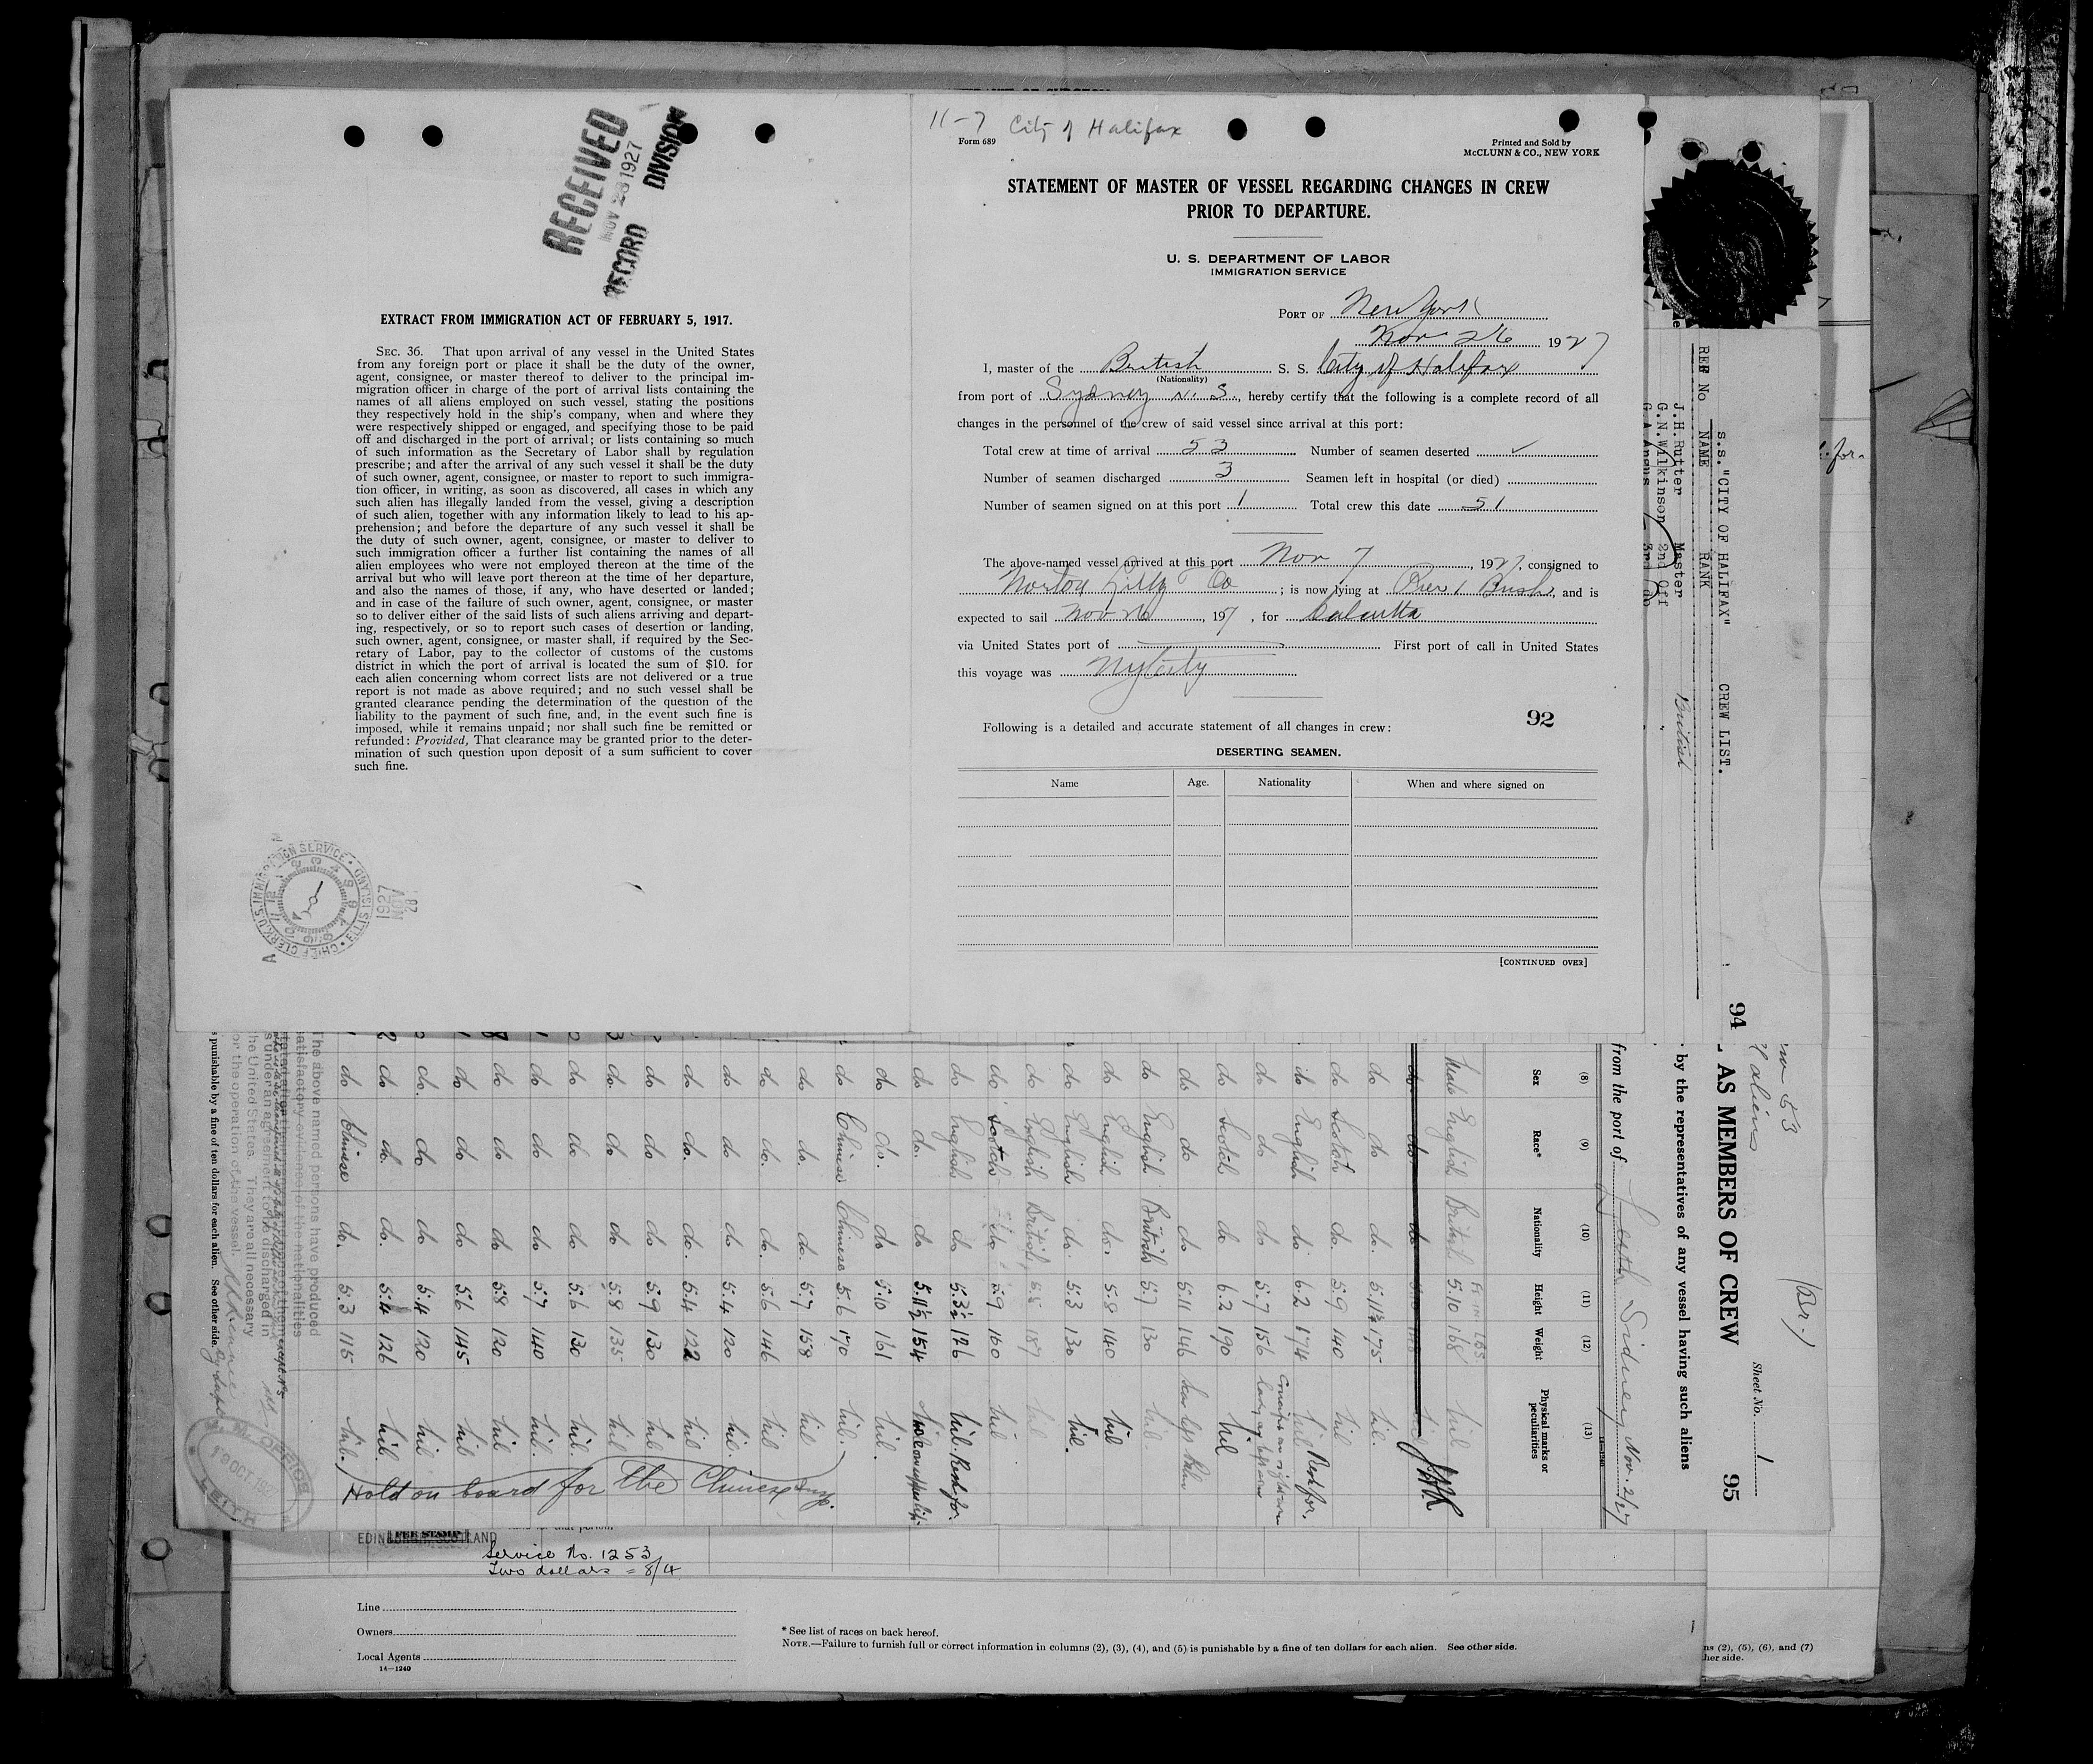 RECEIVED
NOV 28 1927
RECORD DIVISION
EXTRACT FROM IMMIGRATION ACT OF FEBRUARY 5, 1917.
SEC. 36. That upon arrival of any vessel in the United States
from any foreign port or place it shall be the duty of the owner,
agent, consignee, or master thereof to deliver to the principal im-
migration officer in charge of the port of arrival lists containing the
names of all aliens employed on such vessel, stating the positions
they respectively hold in the ship's company, when and where they
were respectively shipped or engaged, and specifying those to be paid
off and discharged in the port of arrival; or lists containing so much
of such information as the Secretary of Labor shall by regulation
prescribe; and after the arrival of any such vessel it shall be the duty
of such owner, agent, consignee, or master to report to such immigra-
tion officer, in writing, as soon as discovered, all cases in which any
such alien has illegally landed from the vessel, giving a description
of such alien, together with any information likely to lead to his ap-
prehension; and before the departure of any such vessel it shall be
the duty of such owner, agent, consignee, or master to deliver to
such immigration officer a further list containing the names of all
alien employees who were not employed thereon at the time of the
arrival but who will leave port thereon at the time of her departure,
and also the names of those, if any, who have deserted or landed;
and in case of the failure of such owner, agent, consignee, or master
so to deliver either of the said lists of such aliens arriving and depart-
ing, respectively, or so to report such cases of desertion or landing,
such owner, agent, consignee, or master shall, if required by the Sec-
retary of Labor, pay to the collector of customs of the customs
district in which the port of arrival is located the sum of $10. for
each alien concerning whom correct lists are not delivered or a true
report is not made as above required; and no such vessel shall be
granted clearance pending the determination of the question of the
liability to the payment of such fine, and, in the event such fine is
imposed, while it remains unpaid; nor shall such fine be remitted or
refunded: Provided, That clearance may be granted prior to the deter-
mination of such question upon deposit of a sum sufficient to cover
such fine.
CHIEF CLERK U.S. IMMIGRATION SERVICE · ELLIS ISLAND
28 NOV 1927
11-7 City of Halifax
Form 689
Printed and Sold by
McCLUNN & CO., NEW YORK
STATEMENT OF MASTER OF VESSEL REGARDING CHANGES IN CREW
PRIOR TO DEPARTURE.
U. S. DEPARTMENT OF LABOR
IMMIGRATION SERVICE
PORT OF New York
Nov 26 1927
I, master of the British S. S. City of Halifax
(Nationality)
from port of Sydney N. S., hereby certify that the following is a complete record of all
changes in the personnel of the crew of said vessel since arrival at this port:
Total crew at time of arrival 53 Number of seamen deserted ✓
Number of seamen discharged 3 Seamen left in hospital (or died)
Number of seamen signed on at this port 1 Total crew this date 51
The above-named vessel arrived at this port Nov 7, 1927, consigned to
Norton Lilly & Co; is now lying at Pier 1 Bush, and is
expected to sail Nov 26, 197, for Calcutta
via United States port of First port of call in United States
this voyage was Ny City
92
Following is a detailed and accurate statement of all changes in crew:
DESERTING SEAMEN.
Name Age. Nationality When and where signed on
[CONTINUED OVER]
s.s. "CITY OF HALIFAX" CREW LIST.
REF No NAME RANK
J.H.Rutter Master British
G.N.Wilkinson 2nd Off "
G.A.Angus 3rd do
94
AS MEMBERS OF CREW
95
Sheet No. 1
(Br.)
53
aliens
by the representatives of any vessel having such aliens
from the port of North Sidney Nov. 2/27
(8) (9) (10) (11) (12) (13)
Sex Race* Nationality Height Weight Physical marks or peculiarities
Ft-ins Lbs
Male English British 5.10 168 nil
do do do. 5.11½ 175 nil.
do Scotch do. 5.9 140 nil
do English do 6.2 174 nil.
do do do. 5.7 156
do Scotch do 6.2 190 nil
do do do 5.11 146
do English British 5.7 130 nil.
do English do. 5.8 140 nil
do English do. 5.3 130 nil.
do English British 5.5 187 nil
do Scotch do 5.9 160 nil
do English do 5.3½ 126 nil.
do. do. do 5.11½ 154
do do. do 5.10 161 nil.
do Chinese Chinese 5.6 170 nil.
do do. do. 5.7 158 nil
do do. do. 5.6 146 nil
do do do. 5.4 120 nil.
do do. do. 5.4 122 nil
do do do 5.9 130 nil
do. do do 5.8 135 nil
do do do 5.6 130 nil.
do do do 5.7 140 nil.
do do do 5.8 120 nil
do do do 5.6 145 nil
do. do do 5.4 120 nil
do do. do. 5.4 126 nil.
do Chinese do. 5.3 115 nil.
Hold on board for the Chinese Insp.
The above named persons have produced
satisfactory evidence of the nationalities
s under an agreement to be discharged in
the United States. They are all necessary
for the operation of the vessel.
is punishable by a fine of ten dollars for each alien. See other side.
H. M. OFFICE
19 OCT 1927
LEITH
EDINBURGH, SCOTLAND
FEE STAMP
Service No. 1253
Two dollars = 8/4
Line
Owners
Local Agents
14—1240
* See list of races on back hereof.
NOTE.—Failure to furnish full or correct information in columns (2), (3), (4), and (5) is punishable by a fine of ten dollars for each alien. See other side.
ns (2), (5), (6), and (7)
her side.